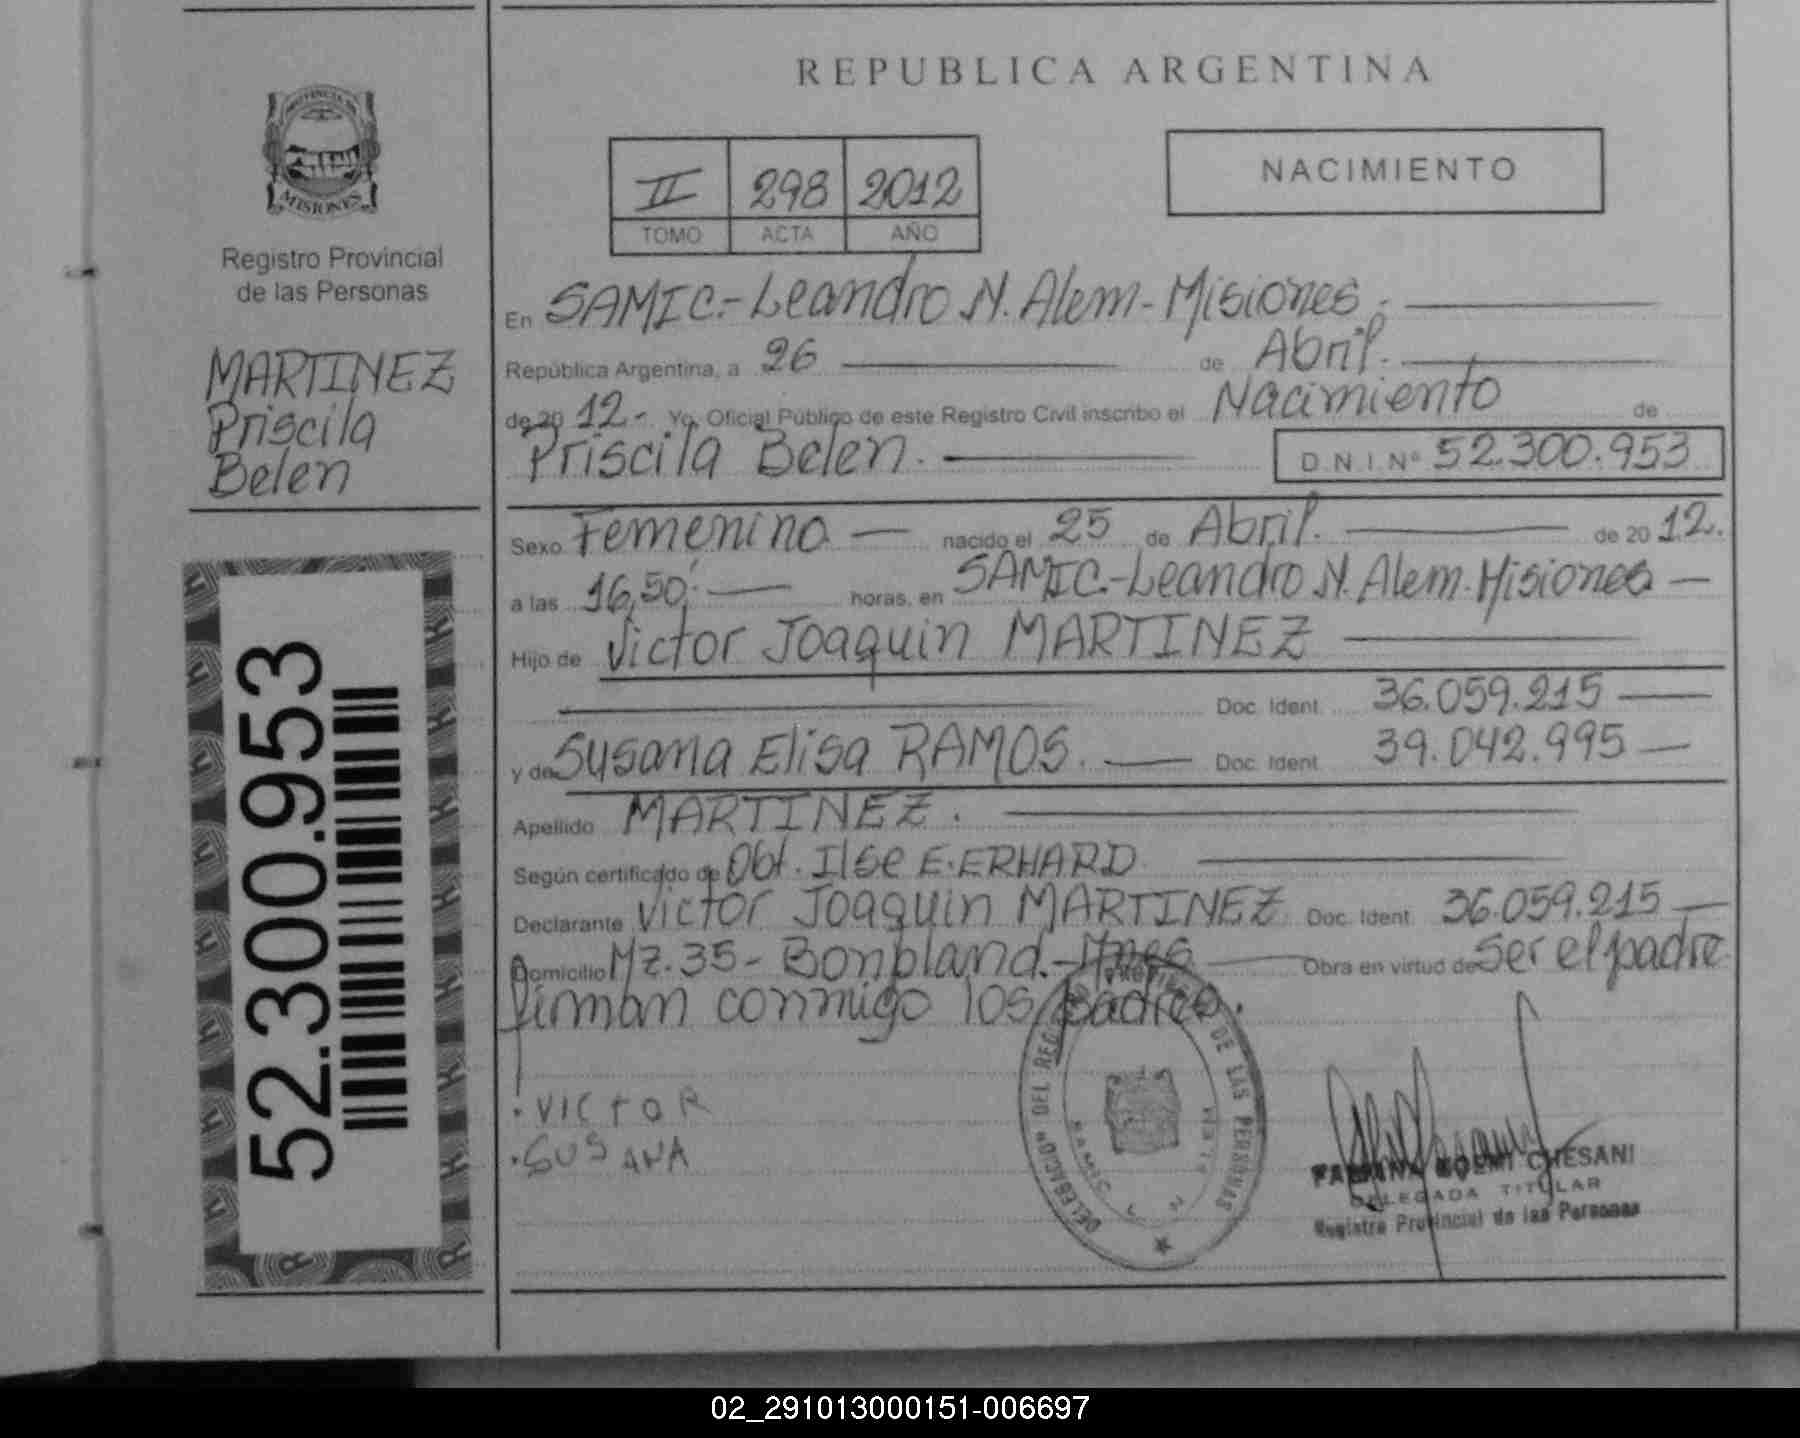 REPUBLICA ARGENTINA
PROVINCIA DE
MISIONES
Registro Provincial
de las Personas
MARTINEZ
Priscila
Belen
52.300.953
II 298 2012
TOMO ACTA AÑO
NACIMIENTO
En SAMIC.-Leandro N. Alem-Misiones.
República Argentina, a 26 de Abril.
de 20 12.- Yo, Oficial Público de este Registro Civil inscribo el Nacimiento de
Priscila Belen. D.N.I.Nº 52.300.953
Sexo Femenino nacido el 25 de Abril. de 20 12.
a las 16,50. horas, en SAMIC.-Leandro N. Alem-Misiones
Hijo de Victor Joaquin MARTINEZ
Doc. Ident. 36.059.215
y de Susana Elisa RAMOS. Doc. Ident. 39.042.995
Apellido MARTINEZ.
Según certificado de Obt. Ilse E. ERHARD
Declarante Victor Joaquin MARTINEZ Doc. Ident. 36.059.215
Domicilio Mz. 35- Bonpland.-Mnes Obra en virtud de ser el padre
firman conmigo los padres.
.VICTOR
.SUSANA
DELEGACION DEL REGISTRO PROVINCIAL DE LAS PERSONAS
SAMIC
FABIANA NOEMI CHESANI
DELEGADA TITULAR
Registro Provincial de las Personas
02_291013000151-006697